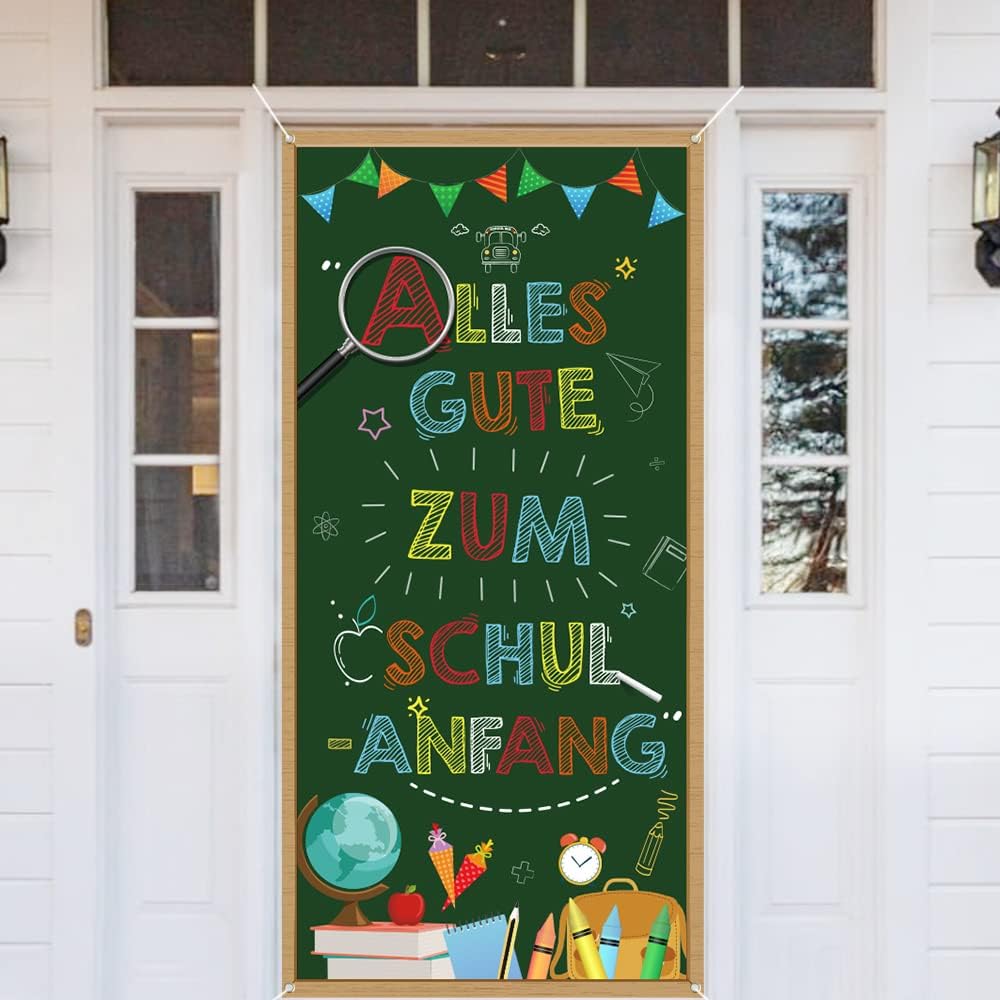 “ALLES
GUTE
ZUM
SCHUL
-ANFANG”